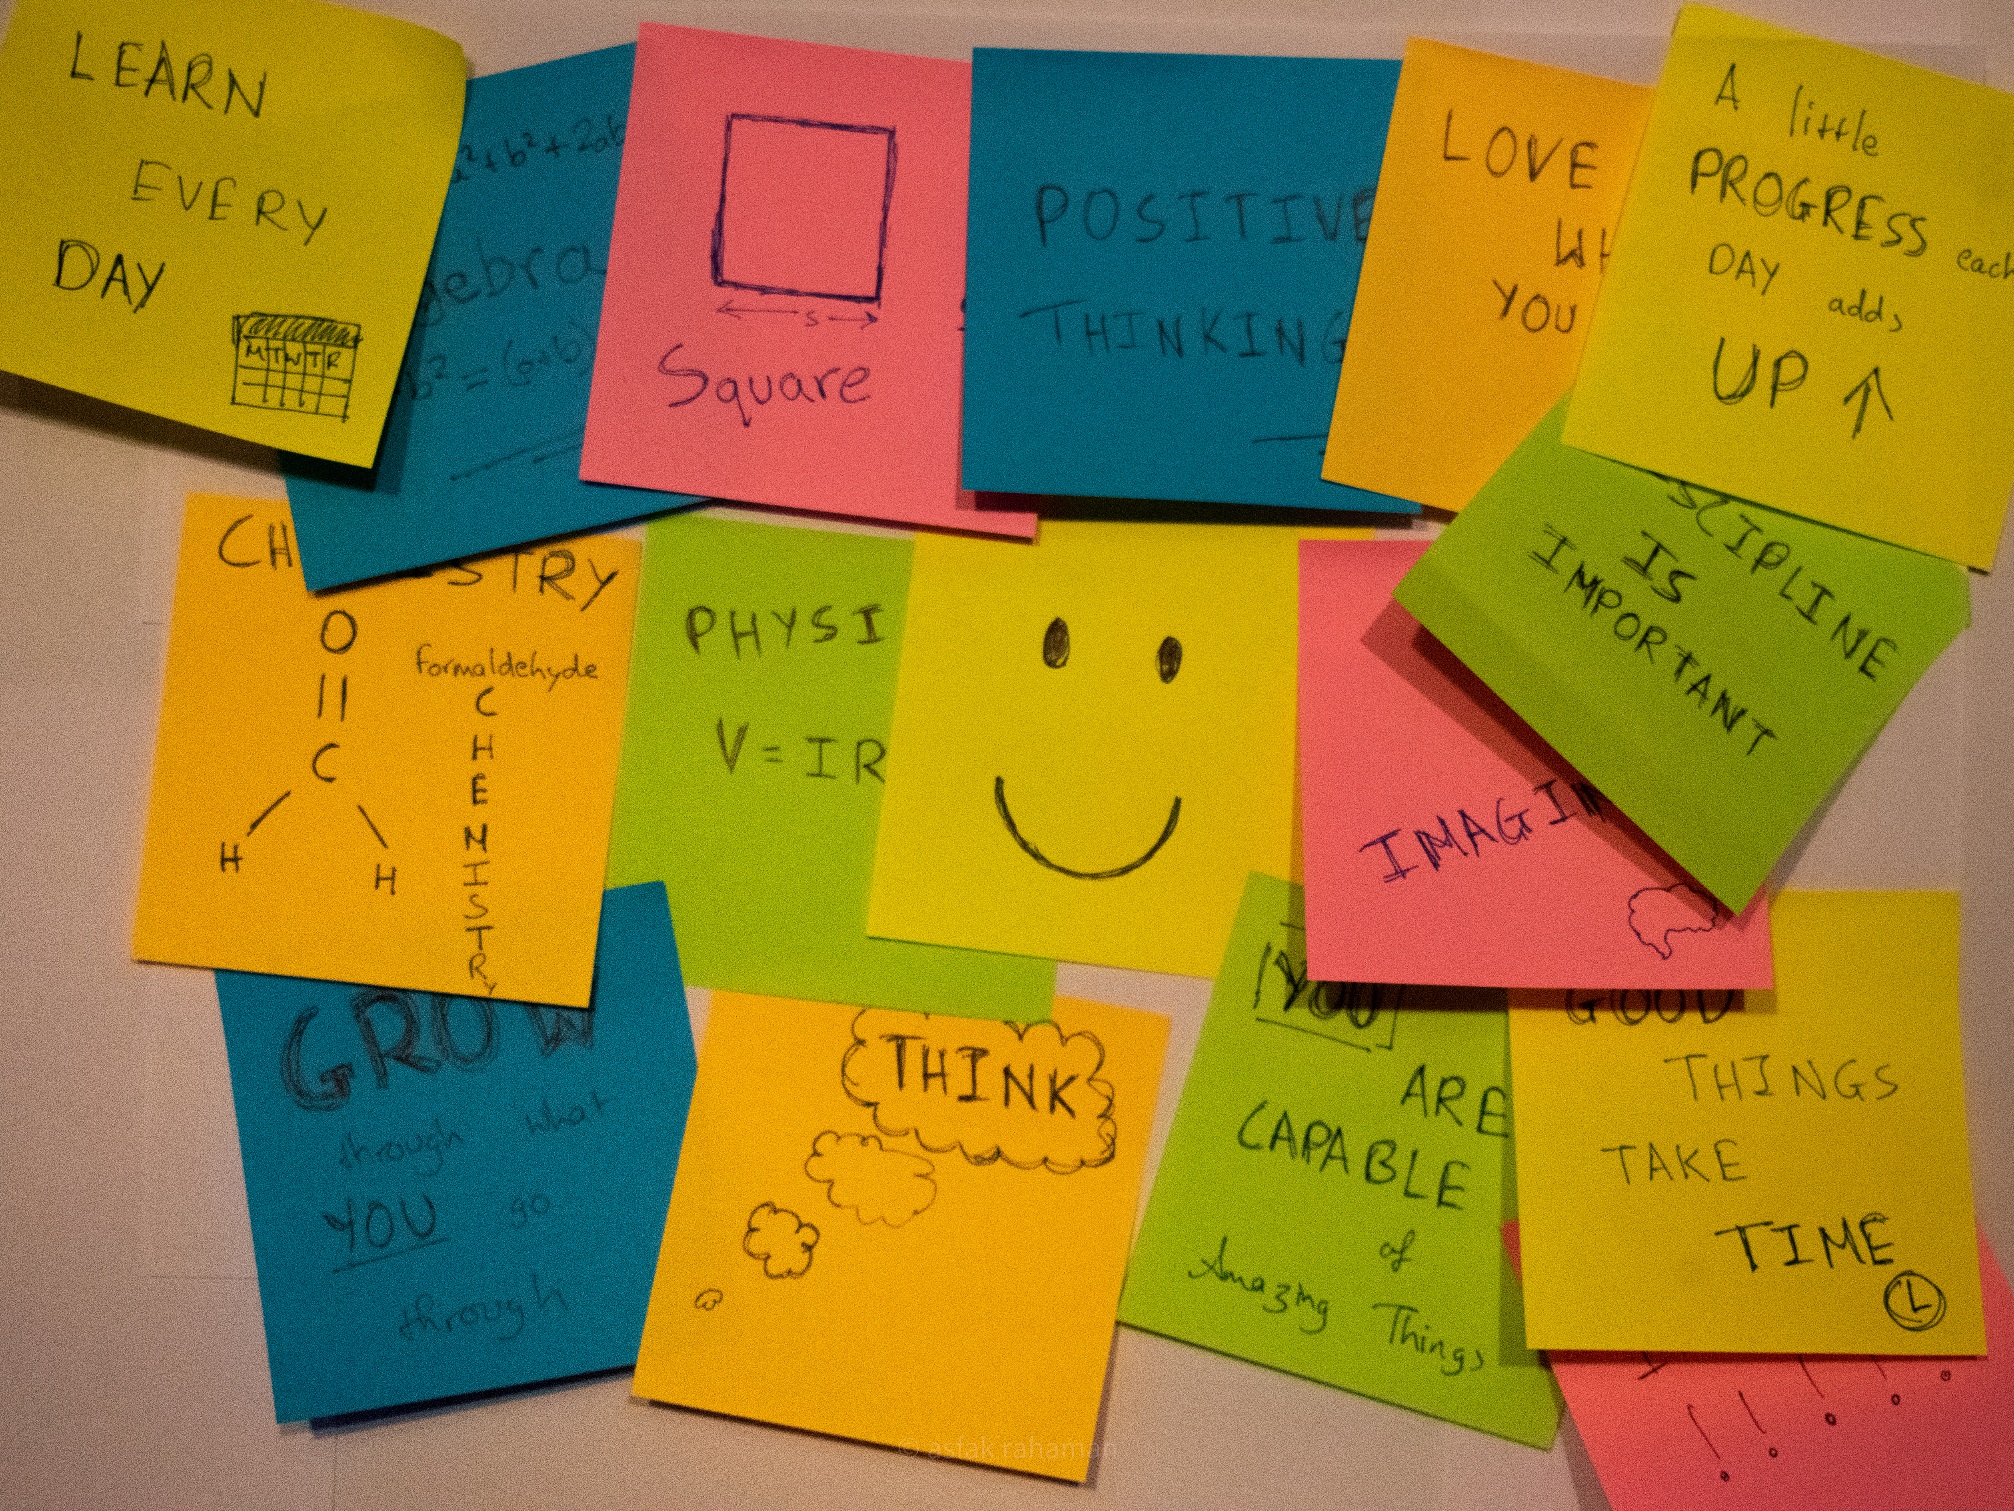 LEARN
EVERY
DAY
M T W T R
a²+b²+2ab
gebra
b² = (a+b)
s
Square
POSITIVE
THINKING
LOVE
WH
YOU
A little
PROGRESS each
DAY adds
UP ↑
SCIPLINE
IS
IMPORTANT
CH STRY
O
||
C
H H
formaldehyde
C
H
E
M
I
S
T
R
Y
PHYSI
V = IR
IMAGIN
GROW
through what
YOU go
through
THINK
YOU
ARE
CAPABLE
of
Amazing Things
GOOD
THINGS
TAKE
TIME
! ! ! ! !
© asfak rahaman